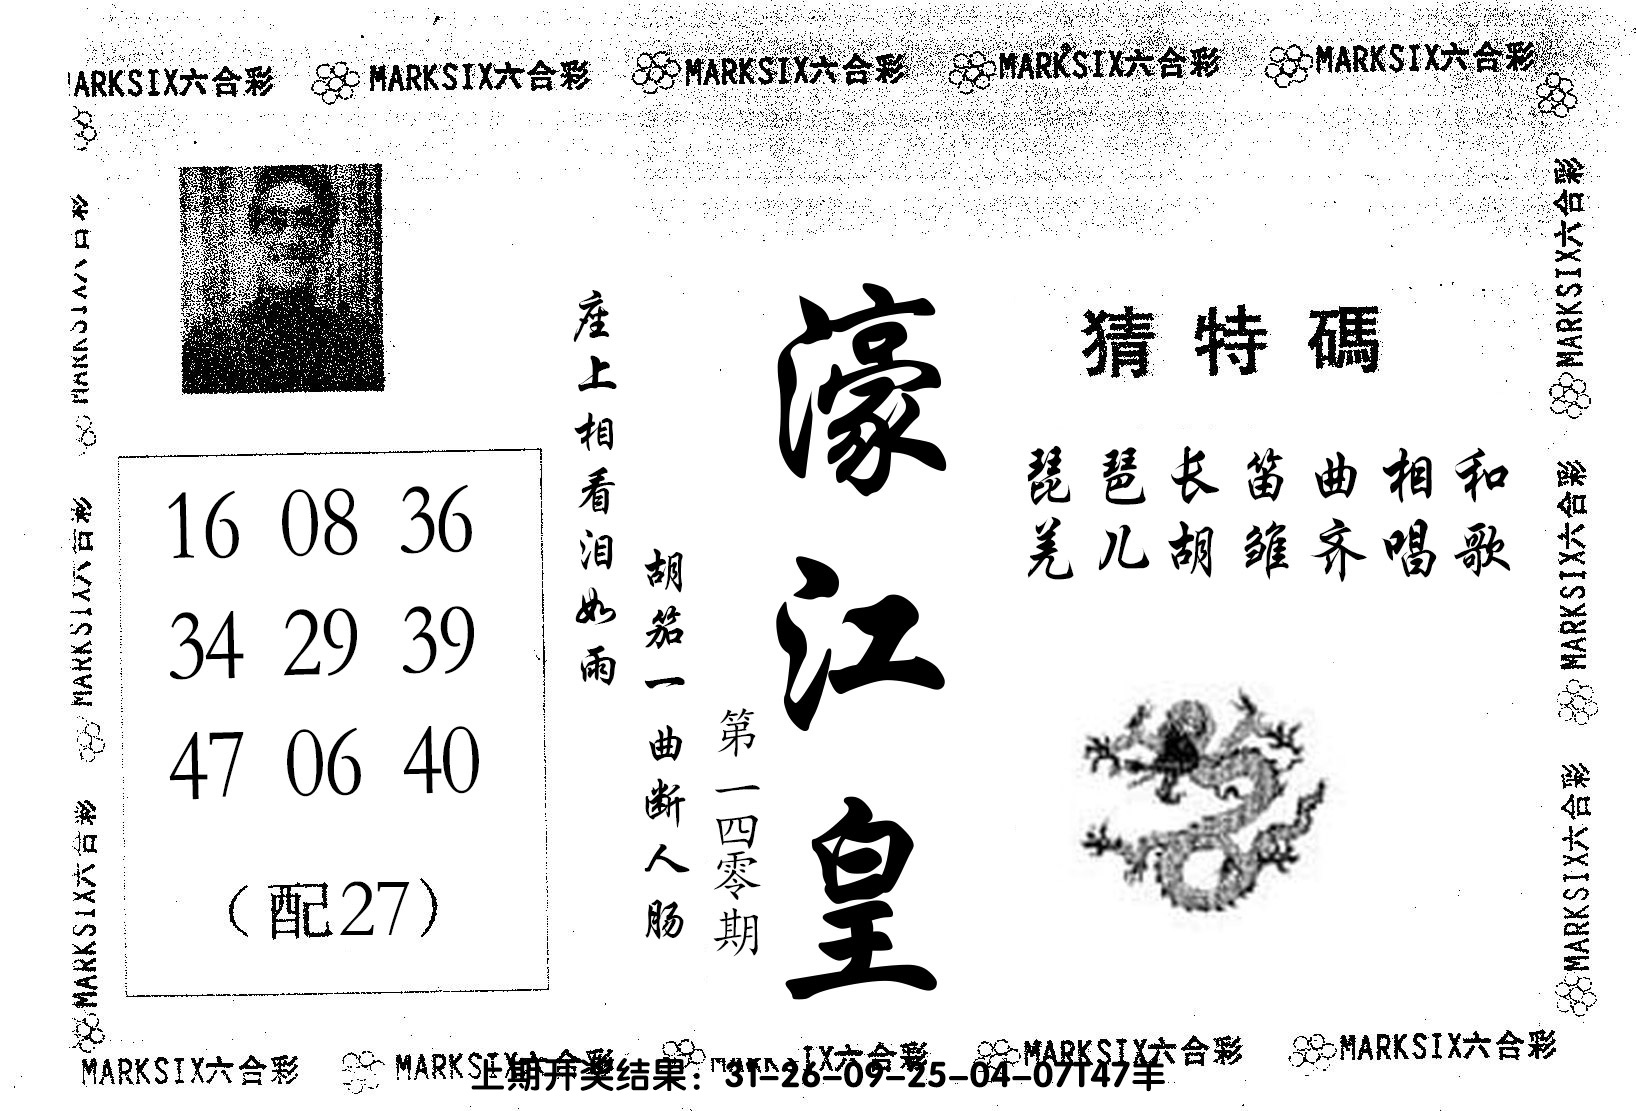 MARKSIX六合彩 MARKSIX六合彩 MARKSIX六合彩 MARKSIX六合彩
猜特碼
琵琶长笛曲相和
羌儿胡雏齐唱歌
濠江皇
第一四零期
座上相看泪如雨
胡笳一曲断人肠
16 08 36
34 29 39
47 06 40
(配27)
MARKSIX六合彩
MARKSIX六合彩
MARKSIX六合彩
MARKSIX六合彩
MARKSIX六合彩
MARKSIX六合彩
MARKSIX六合彩 MARKSIX六合彩 MARKSIX六合彩 MARKSIX六合彩
上期开奖结果：31-26-09-25-04-07T47羊